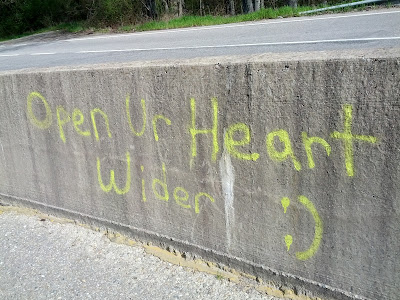 Open Ur Heart
Wider
;)